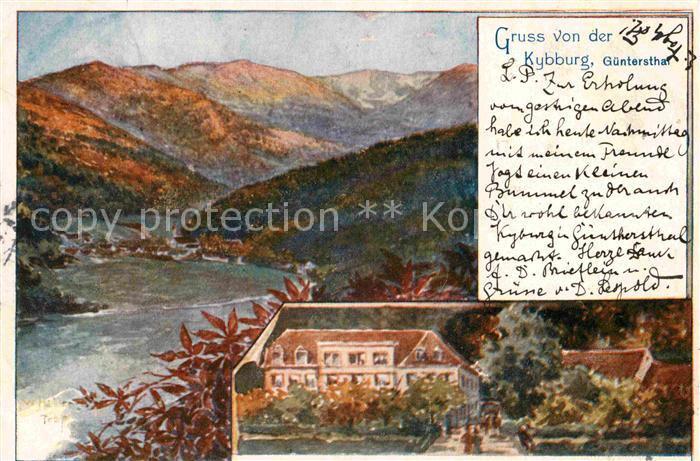 Gruss von der
Kybburg, Güntersthal
L. P. Zur Erholung
vom gestrigen Abend
habe ich heute Nachmittag
mit meinem Freunde
Vogt einen kleinen
Bummel zu der auch
Dir wohl bekannten
Kyburg in Günthersthal
gemacht. Herzl. Dank
f. D. Brieflein u.
Grüsse v. D. Leopold.
copy protection ** Ko